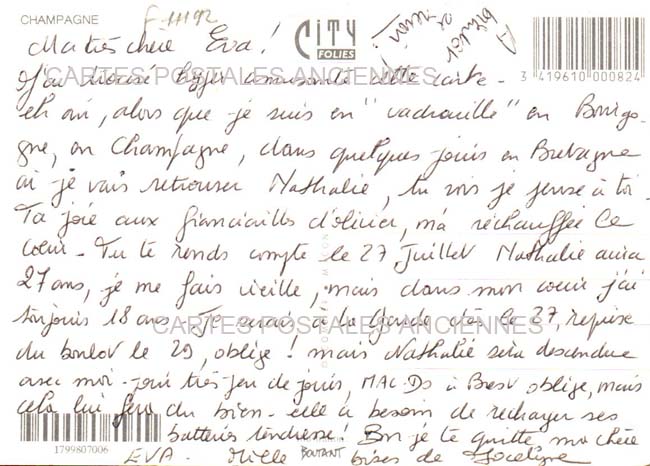 CHAMPAGNE
F-11192
CITY
FOLIES
A bientôt
3 419610 000824
Ma très chère Eva!
CARTES POSTALES ANCIENNES
J'ai trouvé assez amusante cette carte -
eh oui, alors que je suis en "vadrouille" en Bourgo-
gne, en Champagne, dans quelques jours en Bretagne
où je vais retrouver Nathalie, tu vois je pense à toi -
Ta joie aux fiançailles d'olivier, m'a réchauffée le
coeur - Tu te rends compte le 27 Juillet Nathalie aura
27 ans, je me fais vieille, mais dans mon coeur j'ai
toujours 18 ans - Je serais à la Garde dès le 27, reprise
CARTES POSTALES ANCIENNES
du boulot le 29, oblige! mais Nathalie sera descendue
avec moi - pour très peu de jours, MAC-Do à Brest oblige, mais
cela lui fera du bien - elle à besoin de recharger ses
batteries tendresse! Bon je te quitte ma chère
EVA - Mille bises de Jocelyne
BOUTANT
1799807006